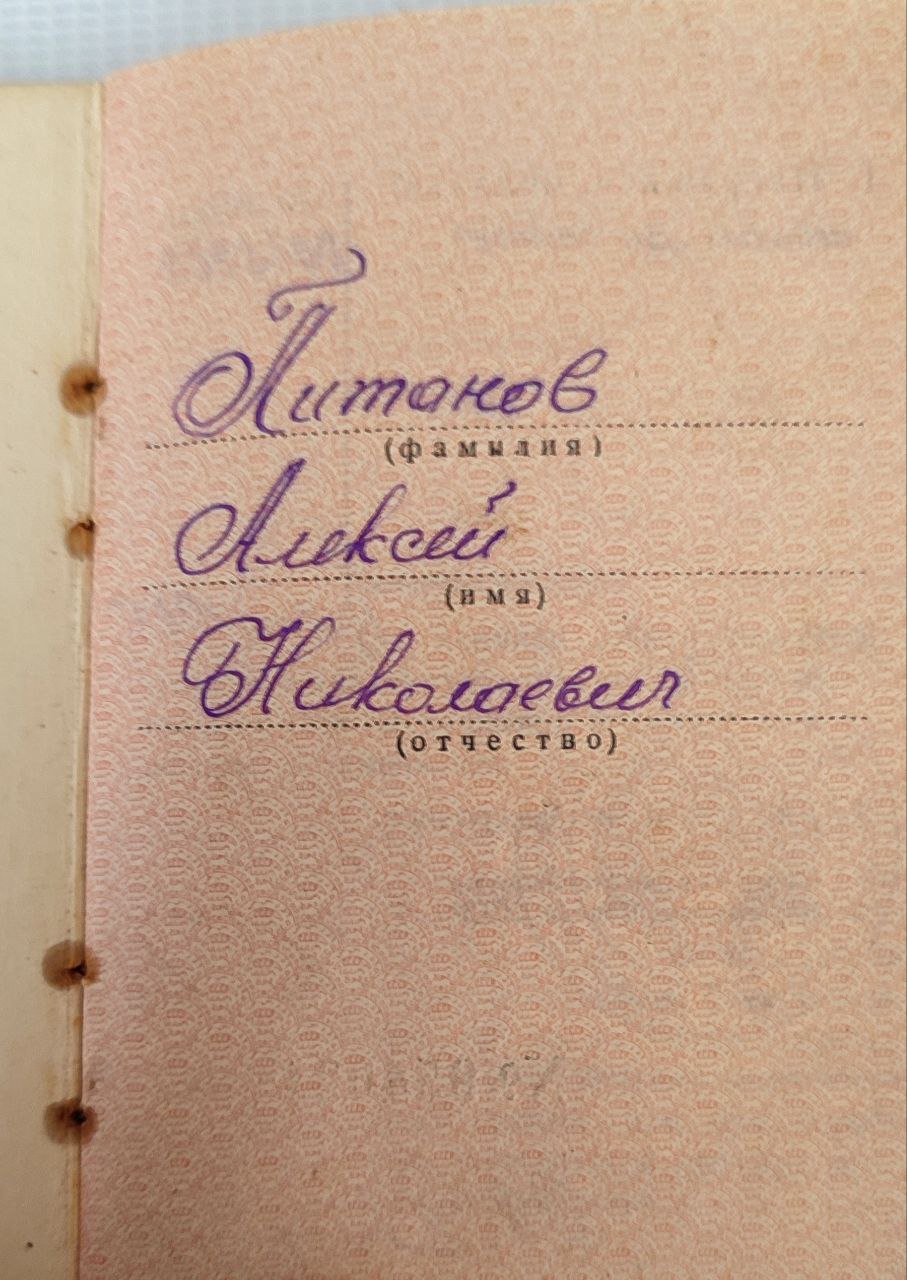 Питанов
(фамилия)
Алексей
(имя)
Николаевич
(отчество)